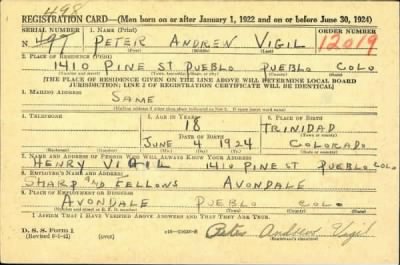 498
REGISTRATION CARD—(Men born on or after January 1, 1922 and on or before June 30, 1924)
SERIAL NUMBER 1. NAME (Print) ORDER NUMBER
N. 497 PETER ANDREW VIGIL 12019
(First) (Middle) (Last)
2. PLACE OF RESIDENCE (Print)
1410 PINE ST PUEBLO PUEBLO COLO
[THE PLACE OF RESIDENCE GIVEN ON THE LINE ABOVE WILL DETERMINE LOCAL BOARD
JURISDICTION; LINE 2 OF REGISTRATION CERTIFICATE WILL BE IDENTICAL]
3. MAILING ADDRESS
SAME
4. TELEPHONE 5. AGE IN YEARS 6. PLACE OF BIRTH
18 TRINIDAD
DATE OF BIRTH
JUNE 4 1924 COLORADO
7. NAME AND ADDRESS OF PERSON WHO WILL ALWAYS KNOW YOUR ADDRESS
HENRY VIGIL PINE ST PUEBLO COLO
8. EMPLOYER'S NAME AND ADDRESS
SHARP AND FELLONS AVONDALE
9. PLACE OF EMPLOYMENT OR BUSINESS
AVONDALE PUEBLO COLO
I AFFIRM THAT I HAVE VERIFIED ABOVE ANSWERS AND THAT THEY ARE TRUE.
D. S. S. Form 1
Peter Andrew Vigil
(Registrant's signature)